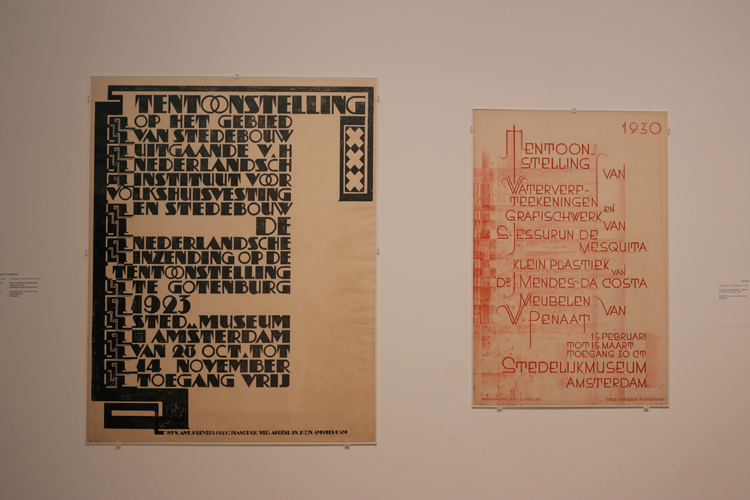 TENTOONSTELLING
OP HET GEBIED
VAN STEDEBOUW
UITGAANDE V.H
NEDERLANDSCH
INSTITUUT VOOR
VOLKSHUISVESTING
EN STEDEBOUW
DE
NEDERLANDSCHE
INZENDING OP DE
TENTOONSTELLING
TE GOTENBURG
1923
STED. MUSEUM
AMSTERDAM
VAN 28 OCT. TOT
14 NOVEMBER
TOEGANG VRIJ
AMSTERDAM
1930
TENTOON-
STELLING
VAN
WATERVERF-
TEEKENINGEN
EN
GRAFISCHWERK
VAN
S. JESSURUN DE
MESQUITA
KLEIN PLASTIEK
VAN
DR J. MENDES-DA COSTA
MEUBELEN
VAN
PENAAT
15 FEBRUARI
TOT 15 MAART
TOEGANG 30 CT
STEDELIJKMUSEUM
AMSTERDAM